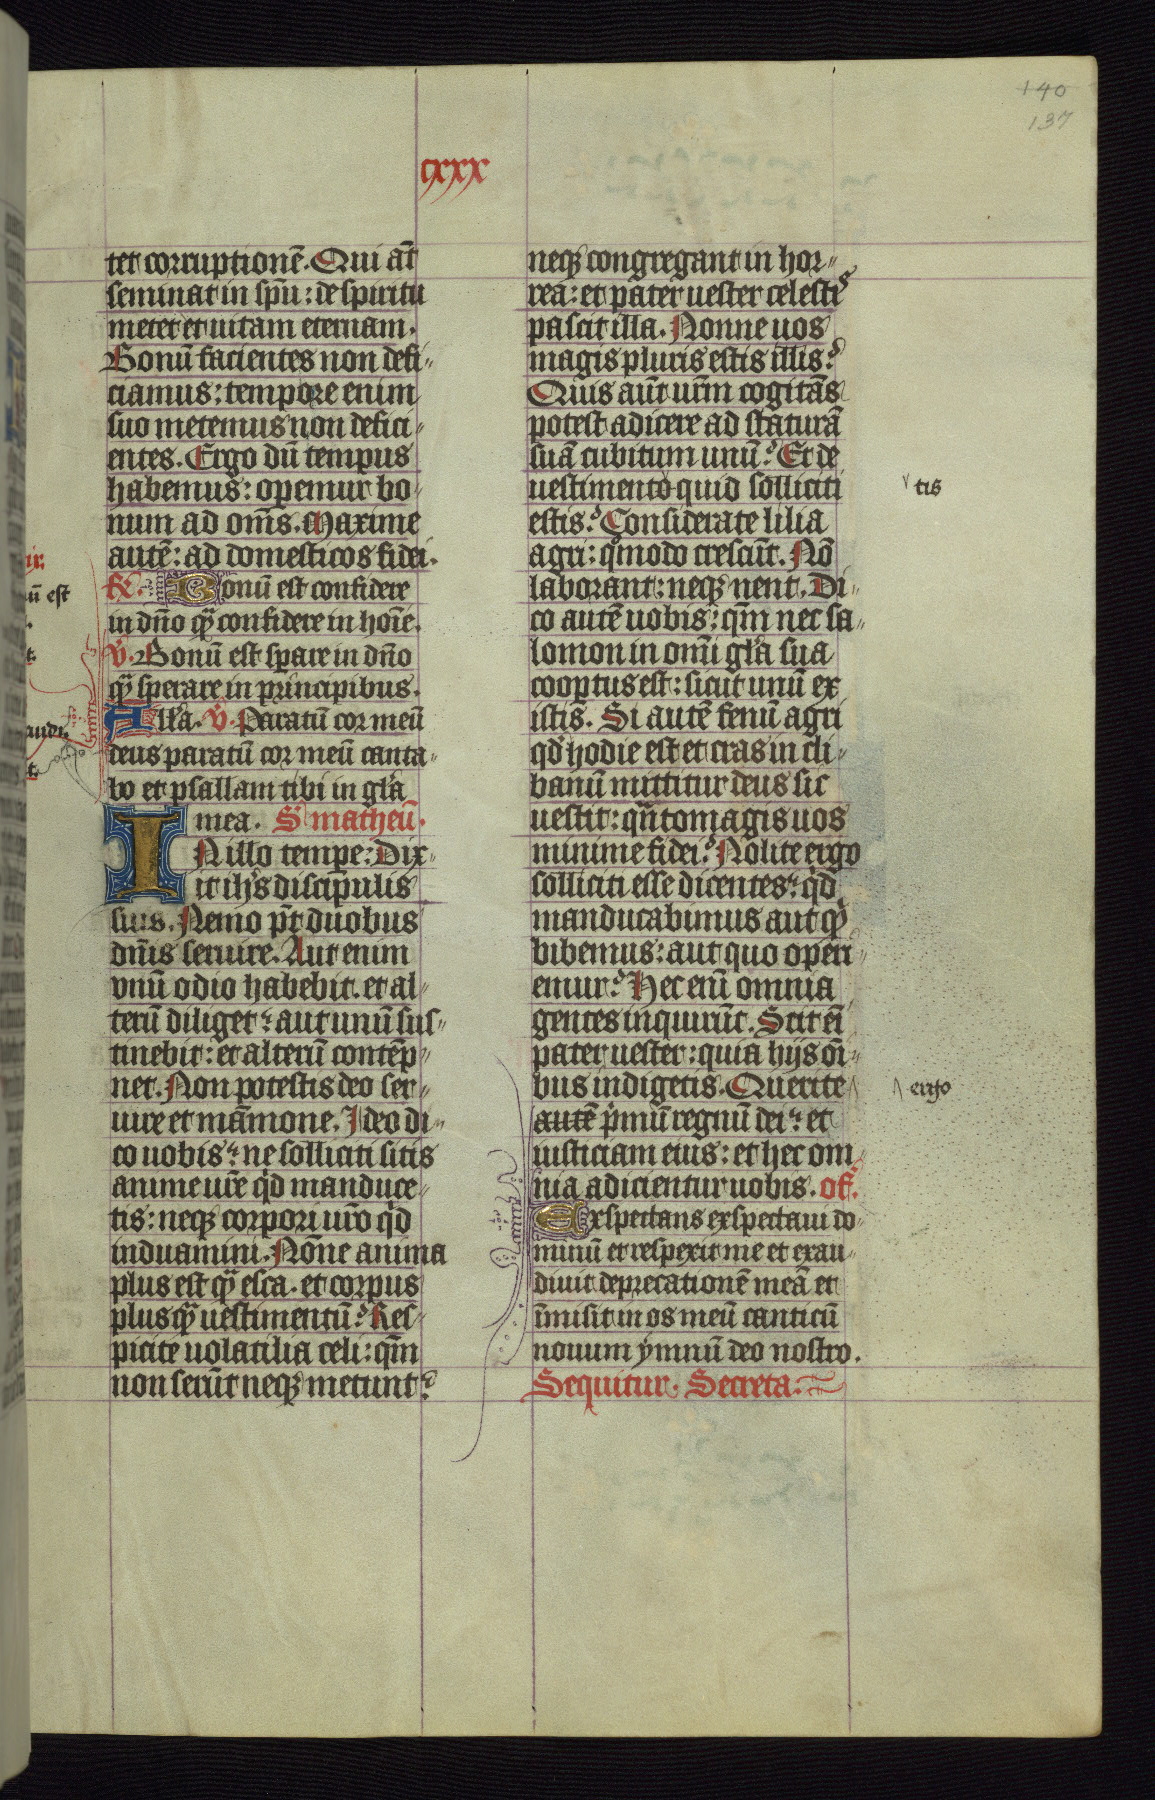 140
137
cxxx
tet corruptionē. Qui aūt
seminat in sp̄u: de spiritu
metet et uitam eternam.
Bonū facientes non defi
ciamus: tempore enim
suo metemus non defici
entes. Ergo dū tempus
habemus: operemur bo
num ad om̄s. Maxime
autē: ad domesticos fidei.
Bonū est confidere
in dn̄o qȝ confidere in hoīe.
V. Bonū est sperare in dn̄o
qȝ sperare in principibus.
Alla. V. Paratū cor meū
deus paratū cor meū canta
bo et psallam tibi in glā
mea. S matheū.
IN illo tempe: Dix
it ihs discipulis
suis. Nemo pt̄ duobus
dn̄is seruire. Aut enim
vnū odio habebit. et al
terū diliget: aut unū sus
tinebit: et alterū contēp
net. Non potestis deo ser
uire et māmone. Ideo di
co uobis: ne solliciti sitis
anime ur̄e qd manduce
tis: neqȝ corpori ur̄o qd
induamini. Nōne anima
plus est qȝ esca. et corpus
plus qȝ uestimentū? Res
picite uolatilia celi: qm̄
non serūt neqȝ metunt:
neqȝ congregant in hor
rea: et pater uester celestis
pascit illa. Nonne uos
magis pluris estis illis?
Quis aūt ur̄m cogitās
potest adicere ad staturā
suā cubitum unū? Et de
uestimento quid solliciti
tis
estis? Considerate lilia
agri: qmodo crescūt. Nō
laborant: neqȝ nent. Di
co autē uobis: qm̄ nec sa
lomon in omī glā sua
cooptus est: sicut unū ex
istis. Si autē fenū agri
qd hodie est et cras in cli
banū mittitur deus sic
uestit: qȝtomagis uos
minime fidei? Nolite ergo
solliciti esse dicentes: qd
manducabimus aut qd
bibemus: aut quo operi
emur? Hec enī omnia
gentes inquirūt. Scit eī
pater uester: quia hijs oī
bus indigetis. Querite
ergo
autē pmū regnū dei: et
iusticiam eius: et hec om
nia adicientur uobis. of.
Exspectans exspectaui do
minū et respexit me et exau
diuit deprecationē meā et
īmisit in os meū canticū
nouum ymnū deo nostro.
Sequitur. Secreta.